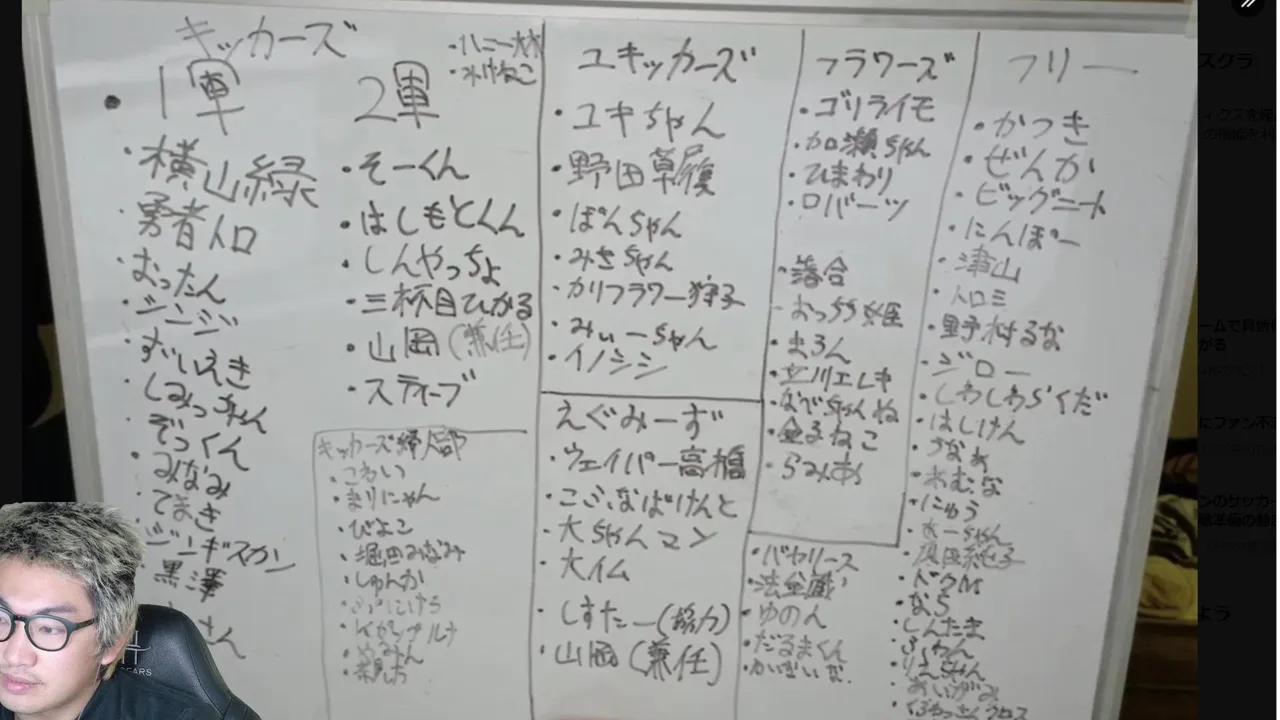 キッカーズ
1軍
・横山緑
・勇者トロ
・おったん
・ジンジ
・ずいえき
・しみっちゃん
・ぞっくん
・みなみ
・てまき
・ジンギスカン
・黒澤
さん
2軍
・ハニー大木
・みけねこ
・そーくん
・はしもとくん
・しんやっちょ
・三杯目ひかる
・山岡(兼任)
・スティーブ
キッカーズ婦人部
・こわい
・まりにゃん
・ぴよこ
・堀田みなみ
・しゅんか
ユキッカーズ
・ユキちゃん
・野田草履
・ぽんちゃん
・みさちゃん
・カリフラワー狩子
・みぃーちゃん
・イノシシ
えぐみーず
・ウェイパー高橋
・こふなばけんと
・大ちゃんマン
・大イム
・しすたー(協力)
・山岡(兼任)
フラワーズ
・ゴリライモ
・加瀬ちゃん
・ひまわり
・ロバーツ
・落合
・おっちち姫
・まろん
・立川エレキ
・なべちゃんね
・金子ねこ
・らみあ
・バヤリース
・法金蔵
・ゆのん
・だるまくん
フリー
・かつき
・ぜんか
・ビッグニート
・にんぽー
・津山
・トロミ
・野村るな
・ジロー
・しわしわらくだ
・はしけん
・うなぁ
・わむな
・にゅう
・ドクM
・なら
・しんたま
・ふわん
・りょちゃん
・あいがみ